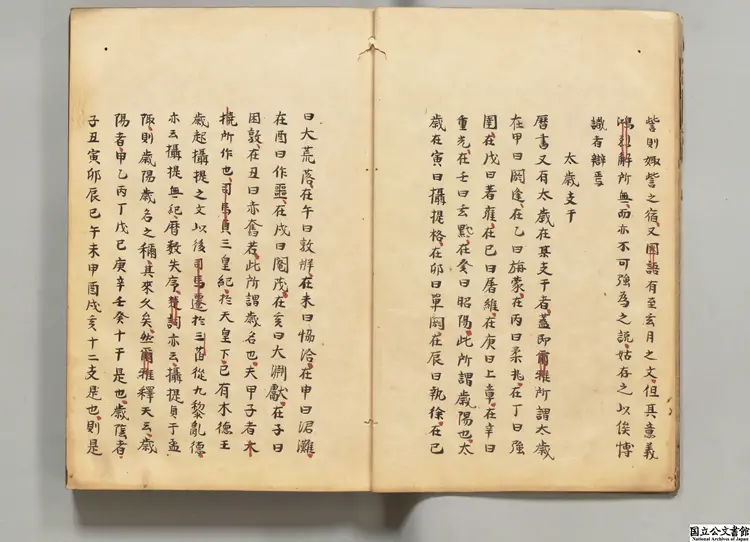 訾則娵訾之宿又国語有至玄月之文但其意義
鴻烈解所無而亦不可強為之説姑存之以俟博
識者辯焉
太歳支干
暦書又有太歳在某支干者蓋即爾雅所謂太歳
在甲曰閼逢在乙曰旃蒙在丙曰柔兆在丁曰強
圉在戊曰著雍在已曰屠維在庚曰上章在辛曰
重光在壬曰玄黓在癸曰昭陽此所謂歳陽也太
歳在寅曰攝提格在卯曰單閼在辰曰執徐在已
曰大荒落在午曰敦牂在未曰恊洽在申曰涒灘
在酉曰作噩在戌曰閹茂在亥曰大淵獻在子曰
困敦在丑曰赤奮若此所謂歳名也夫甲子者大
撓所作也司馬貞三皇紀於天皇下已有木德王
歳起攝提之文以後司馬遷於三苗從九黎亂德
亦云攝提無紀暦数失序楚詞亦云攝提貞于孟
陬則歳陽歳名之稱其來久矣然爾雅釋天云歳
陽者甲乙丙丁戊已庚辛壬癸十干是也歳陰者
子丑寅卯辰已午未申酉戌亥十二支是也則是
国立公文書館
National Archives of Japan